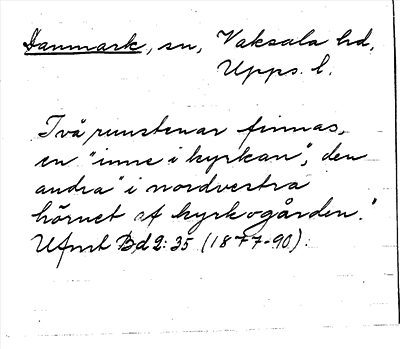 Danmark, sn, Vaksala hd,
Upps. l.
Två runstenar finnas,
en "inne i kyrkan", den
andra "i nordvestra
hörnet af kyrkogården."
Ufmt Bd 2: 35 (1877-90).